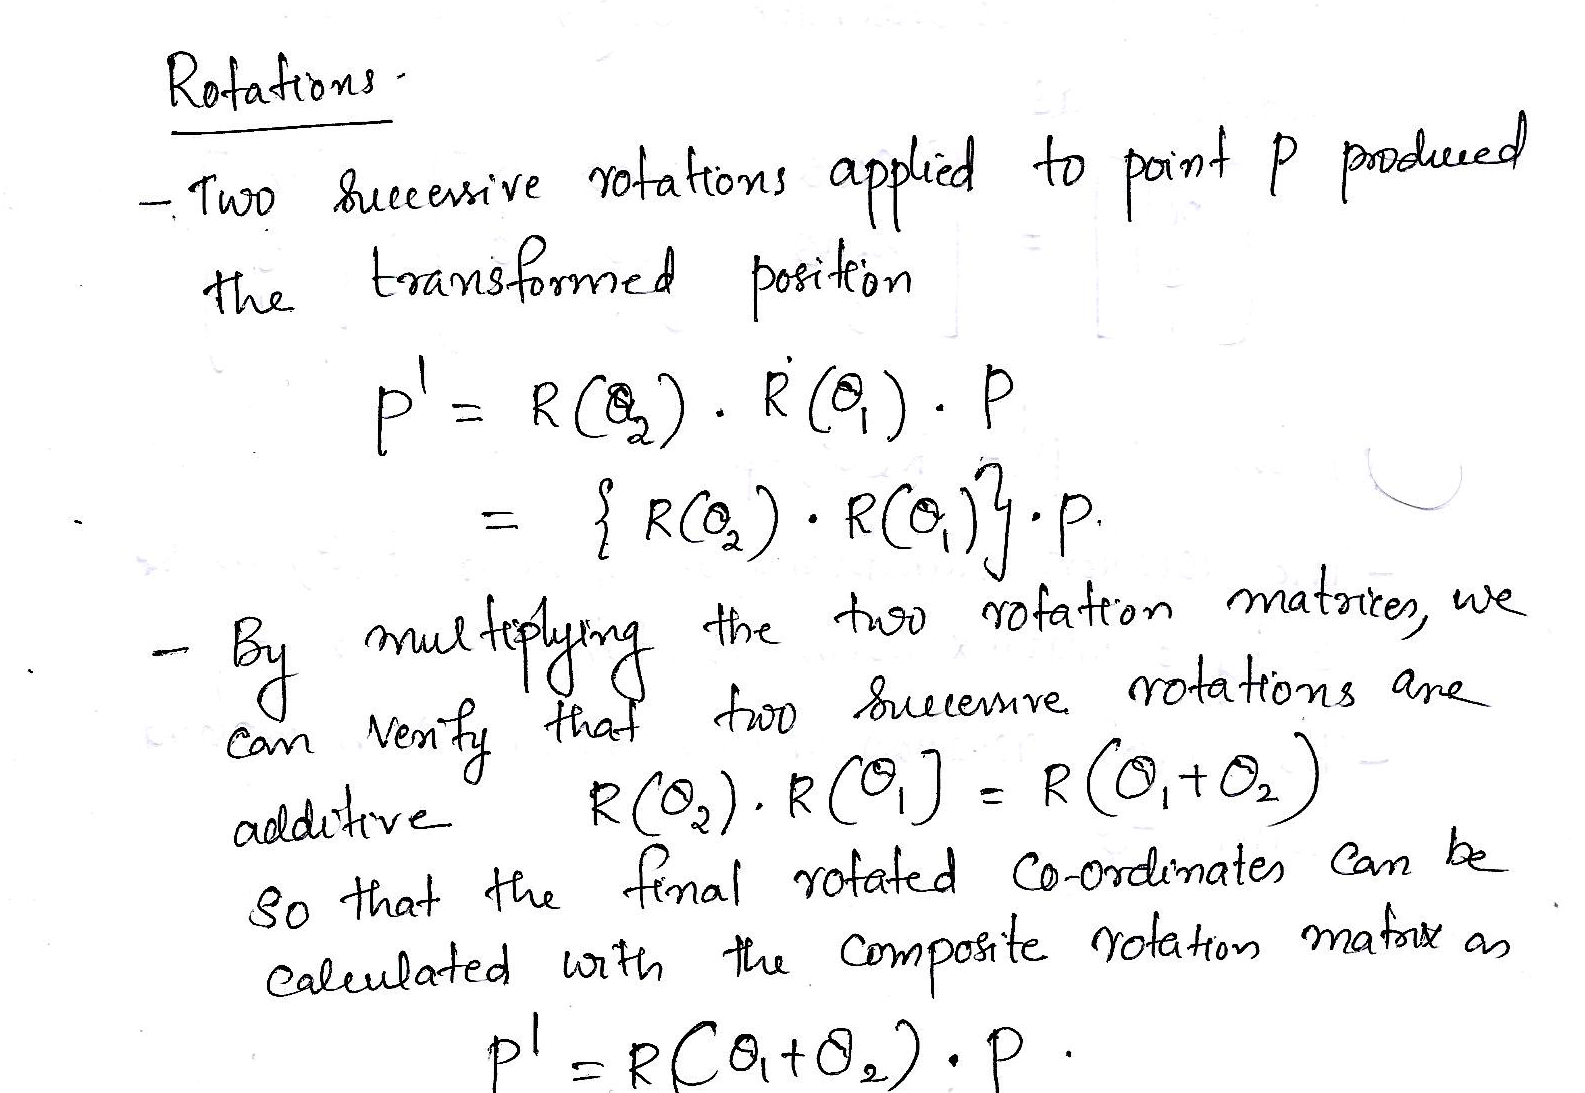 Rotations.
- Two successive rotations applied to point P produced
the transformed position
P' = R(θ₂) . R(θ₁) . P
= { R(θ₂) . R(θ₁)} . P.
- By multiplying the two rotation matrices, we
can verify that two successive rotations are
additive R(θ₂) . R(θ₁] = R(θ₁+θ₂)
so that the final rotated co-ordinates can be
calculated with the composite rotation matrix as
P' = R(θ₁+θ₂) . P .